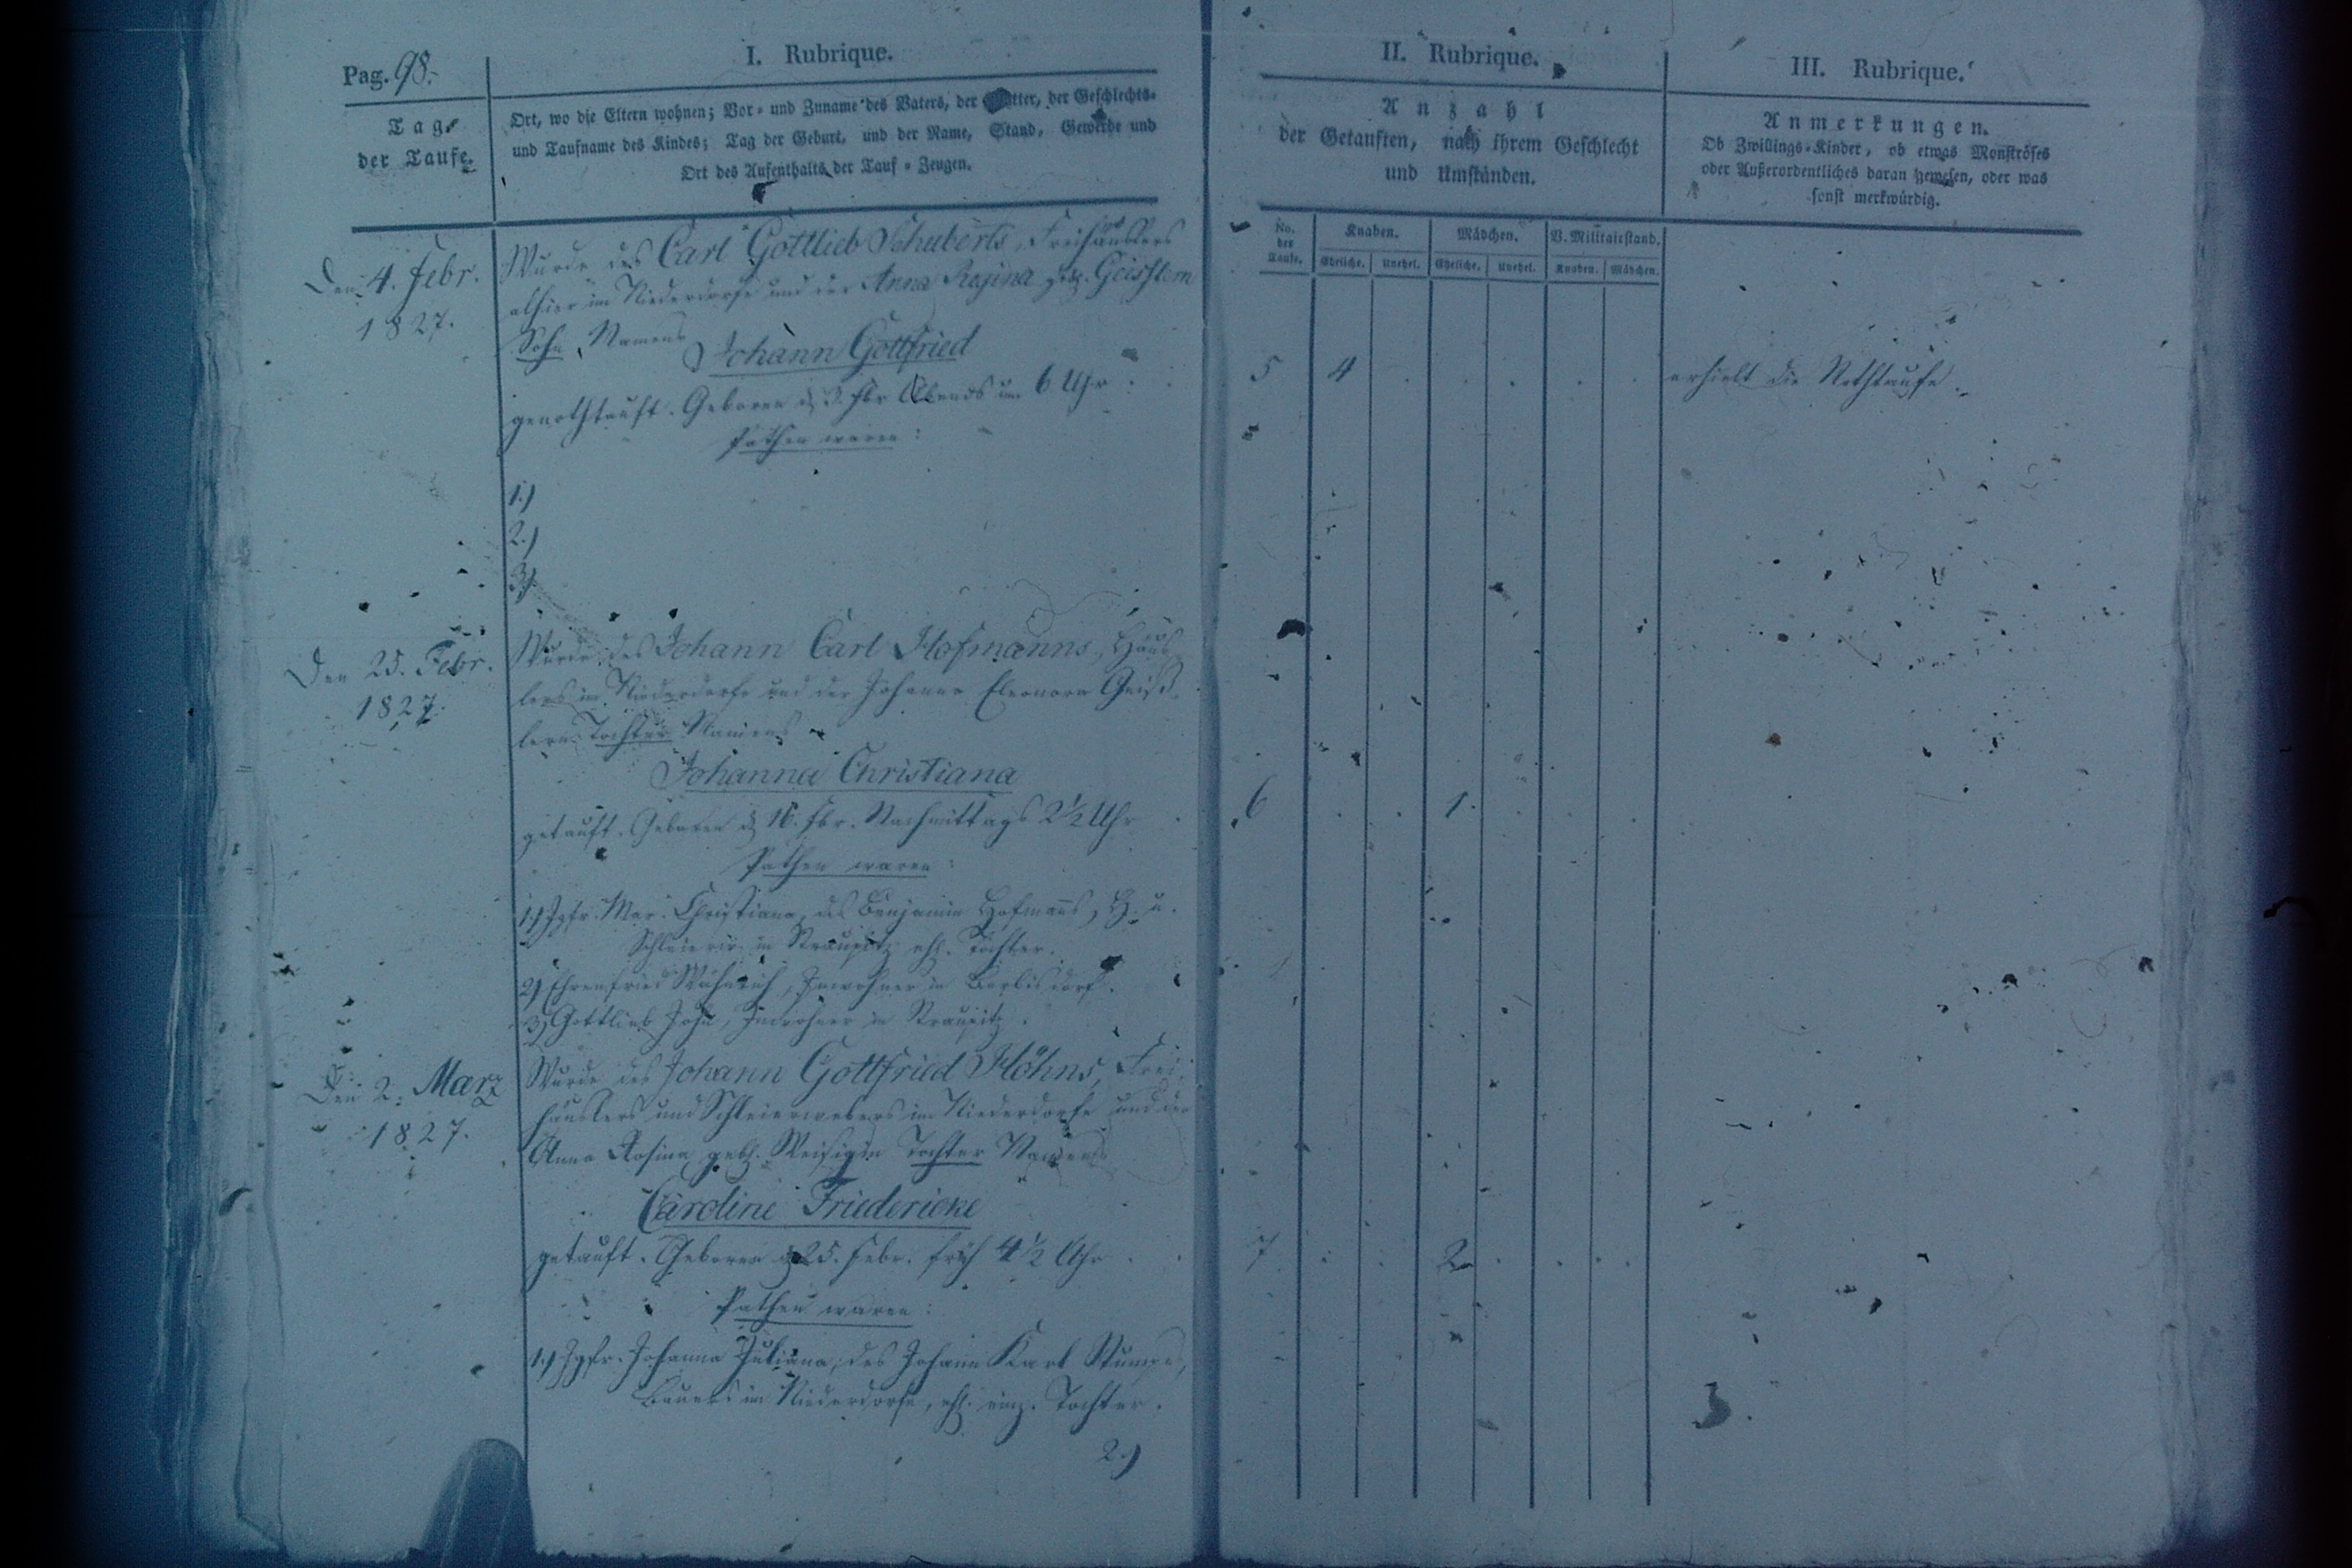 Pag. 98.
I. Rubrique.
Tag
der Taufe.
Ort, wo die Eltern wohnen; Vor- und Zuname des Vaters, der Mutter, der Geschlechts-
und Taufname des Kindes; Tag der Geburt, und der Name, Stand, Gewerbe und
Ort des Aufenthalts der Tauf-Zeugen.
Den 4. Febr.
1827.
Wurde des Carl Gottlieb Schuberts, Freihäuslers
alhier im Niederdorfe und der Anna Regina geb. Geislern
Sohn, Namens Johann Gottfried
genothtauft. Geboren d. 3. Fbr Abends um 6 Uhr
Pathen waren:
1.)
2.)
3.)
Den 25. Febr.
1827.
Wurde des Johann Carl Hofmanns, Häus-
lers im Niederdorfe und der Johanne Eleonora Geiß-
lern Tochter Namens
Johanna Christiana
getauft. Geboren d. 16. Fbr. Nachmittags 2½ Uhr
Pathen waren:
1.) Jgfr. Mar. Christiana, des Benjamin Hofmanns, H. u.
in Straupitz ehl. Tochter.
2.) Ehrenfried Inwohner in Berbisdorf.
3.) Gottlieb John, Inwohner in Straupitz.
Den 2. Marz
1827.
Wurde des Johann Gottfried Höhns, Frei-
häuslers und Schleierwebers im Niederdorfe und der
Anna Rosina geb. Tochter Namens
Caroline Friedericke
getauft. Geboren d. 25. Febr. früh 4½ Uhr
Pathen waren:
1.) Jgfr. Johanna Juliana, des Johann Karl
Bauers im Niederdorfe, ehl. einz. Tochter.
2.)
II. Rubrique.
Anzahl
der Getauften, nach ihrem Geschlecht
und Umständen.
No. der Taufe.
Knaben.
Mädchen.
B. Militairstand.
Eheliche. Unehel. Eheliche. Unehel. Knaben. Mädchen.
5 4
6 1.
7 2
III. Rubrique.
Anmerkungen.
Ob Zwillings-Kinder, ob etwas Monströses
oder Außerordentliches daran gewesen, oder was
sonst merkwürdig.
erhielt die Nothtaufe.